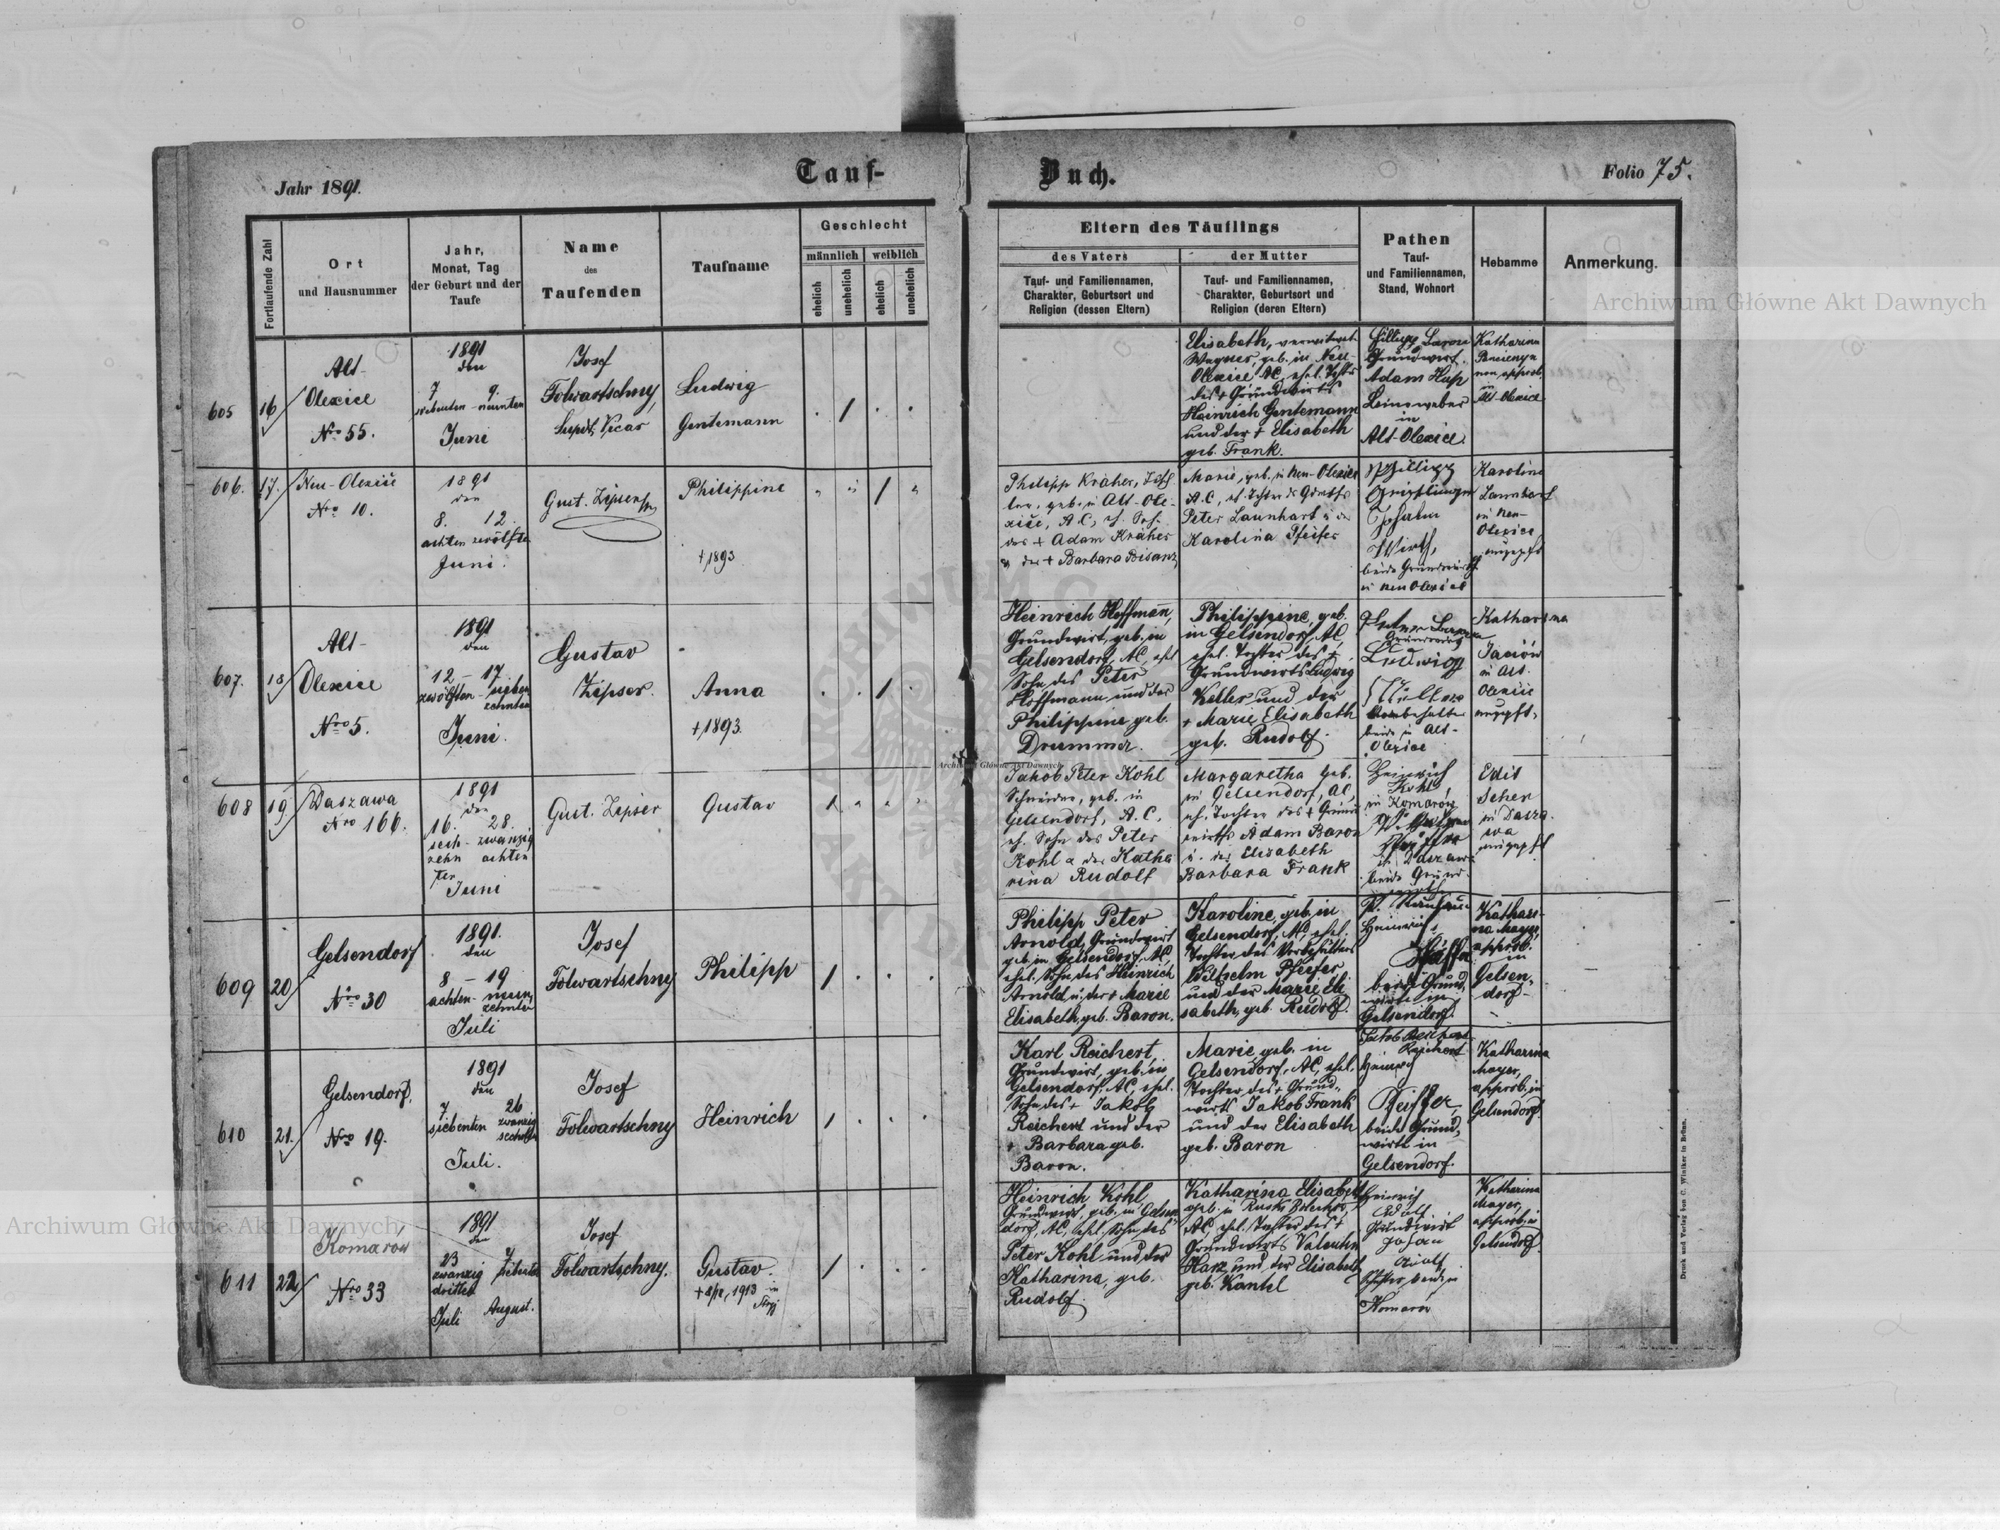 Jahr 1891.
Tauf-
Buch.
Folio 75.
Fortlaufende Zahl
Ort
und Hausnummer
Jahr,
Monat, Tag
der Geburt und der
Taufe
Name
des
Taufenden
Taufname
Geschlecht
männlich
weiblich
ehelich
unehelich
ehelich
unehelich
Eltern des Täuflings
des Vaters
der Mutter
Tauf- und Familiennamen,
Charakter, Geburtsort und
Religion (dessen Eltern)
Tauf- und Familiennamen,
Charakter, Geburtsort und
Religion (deren Eltern)
Pathen
Tauf-
und Familiennamen,
Stand, Wohnort
Hebamme
Anmerkung.
605
16
Alt-
Olexice
Nro 55.
1891
den
7 9.
siebenten - neunten
Juni
Josef
Folwartschny,
Supdt. Vicar
Ludwig
Gentemann
Elisabeth, verwitwet
Wagner, geb. in Neu-
Olexice AC, ehel. Tochter
des + Grundwirts
Heinrich Gentemann
und der + Elisabeth
geb. Frank.
Grundwirt
Adam
Leineweber
in
Alt-Olexice.
Katharina
in
Alt-Olexice
606.
17.
Neu-Olexice
Nro 10.
1891
den
8. 12.
achten zwölften
Juni.
Gust. Zipser
Philippine
+ 1893
Philipp Kräher,
geb. in Alt-Ole-
xice, A.C., eh. Sohn
des + Adam Kräher
u der + Barbara Bisanz
Marie, geb. in Neu-Olexice
A.C., eh. Tochter des
Peter Launhart u der
Karolina Pfeifer
Philipp
Wirth,
beide Grundwirthe
in Neu Olexice
Karoline
Launhart
in Neu-
Olexice
ungepft
607.
18
Alt-
Olexice
Nro 5.
1891
den
12 - 17
zwölften - sieben
zehnten
Juni.
Gustav
Zipser.
Anna
+ 1893.
Heinrich Hoffmann,
Grundwirt, geb. in
Gelsendorf, AC, ehel
Sohn des Peter
Hoffmann und der
Philippine geb.
Drummer.
Philippine, geb.
in Gelsendorf, AC,
ehel. Tochter des +
Grundwirts Ludwig
Keller und der
+ Marie Elisabeth
geb. Rudolf.
Ludwig
beide in Alt-
Olexice
Katharina
in Alt-
Olexice
ungepft.
608
19
Daszawa
Nro 166.
1891
den
16. 28.
sech- zwanzig
zehn achten
ten
Juni
Gust. Zipser
Gustav
Jakob Peter Kohl
Schneider, geb. in
Gelsendorf, A.C.,
eh. Sohn des Peter
Kohl u der Katha
rina Rudolf
Margaretha geb.
in Gelsendorf, AC,
eh. Tochter des + Grund
wirths Adam Baron
u. der Elisabeth
Barbara Frank
Heinrich
Kohl,
in Komarów
in Daszawa
beide Grund-
wirthe
Edis
Scher
in Dasza
wa
ungepft
609
20
Gelsendorf
Nro 30
1891.
den
8 - 19
achten - neun
zehnten
Juli
Josef
Folwartschny
Philipp
Philipp Peter
Arnold, Grundwirt
geb. in Gelsendorf, AC,
ehel. Sohn des Heinrich
Arnold u. der + Marie
Elisabeth, geb. Baron.
Karoline, geb. in
Gelsendorf, AC, ehel.
Tochter des Vorbehälters
Wilhelm Pfeifer
und der Marie Eli
sabeth, geb. Rudolf.
Heinrich
beide Grund-
wirte in
Gelsendorf.
Kathari-
na Mayer,
approb.
in
Gelsen-
dorf
610
21.
Gelsendorf,
Nro 19.
1891
den
7 26
siebenten zwanzig
sechsten
Juli.
Josef
Folwartschny
Heinrich
Karl Reichert,
Grundwirt, geb. in
Gelsendorf, AC, ehel.
Sohn des + Jakob
Reichert und der
+ Barbara geb.
Baron.
Marie geb. in
Gelsendorf, AC, ehel.
Tochter des + Grund-
wirts Jakob Frank
und der Elisabeth
geb. Baron
Reichert
beide Grund-
wirte in
Gelsendorf.
Katharina
Mayer,
approb. in
Gelsendorf
611
22
Komarów
Nro 33
1891
den
23 7
zwanzig siebenten
dritten
Juli August.
Josef
Folwartschny.
Gustav
1913 in
Stryj
Heinrich Kohl
Grundwirt, geb. in Gelsen
dorf, AC, ehel. Sohn des
Peter Kohl und der
Katharina, geb.
Rudolf.
Katharina Elisabeth
geb. in
AC, ehel. Tochter des +
Grundwirts Valentin
Harz und der Elisabeth
geb. Kantel
Heinrich
Grundwirt
Johan
Komarów
Katharina
Mayer,
approb. in
Gelsendorf.
Archiwum Główne Akt Dawnych
Archiwum Główne Akt Dawnych
Archiwum Główne Akt Dawnych
Druck und Verlag von C. Winiker in Brünn.